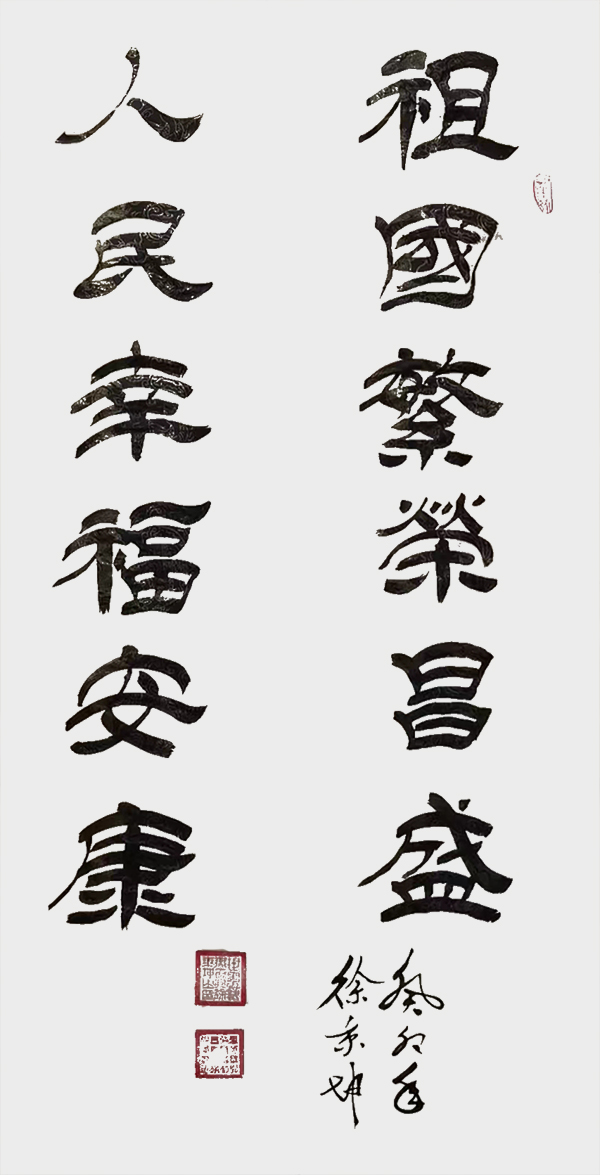 祖國繁榮昌盛
人民幸福安康
癸卯年
徐秉坤